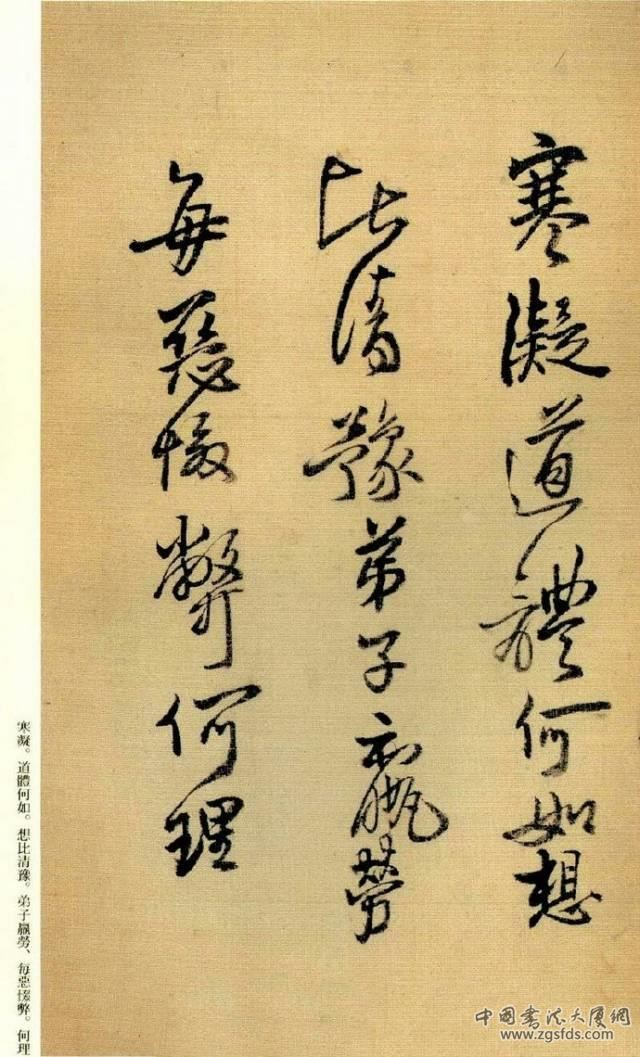 寒凝道體何如想
比清豫弟子羸勞
每惡惙弊何理
寒凝。道體何如。想比清豫。弟子羸勞、每惡惙弊。何理
中国书法大厦網
www.zgsfds.com